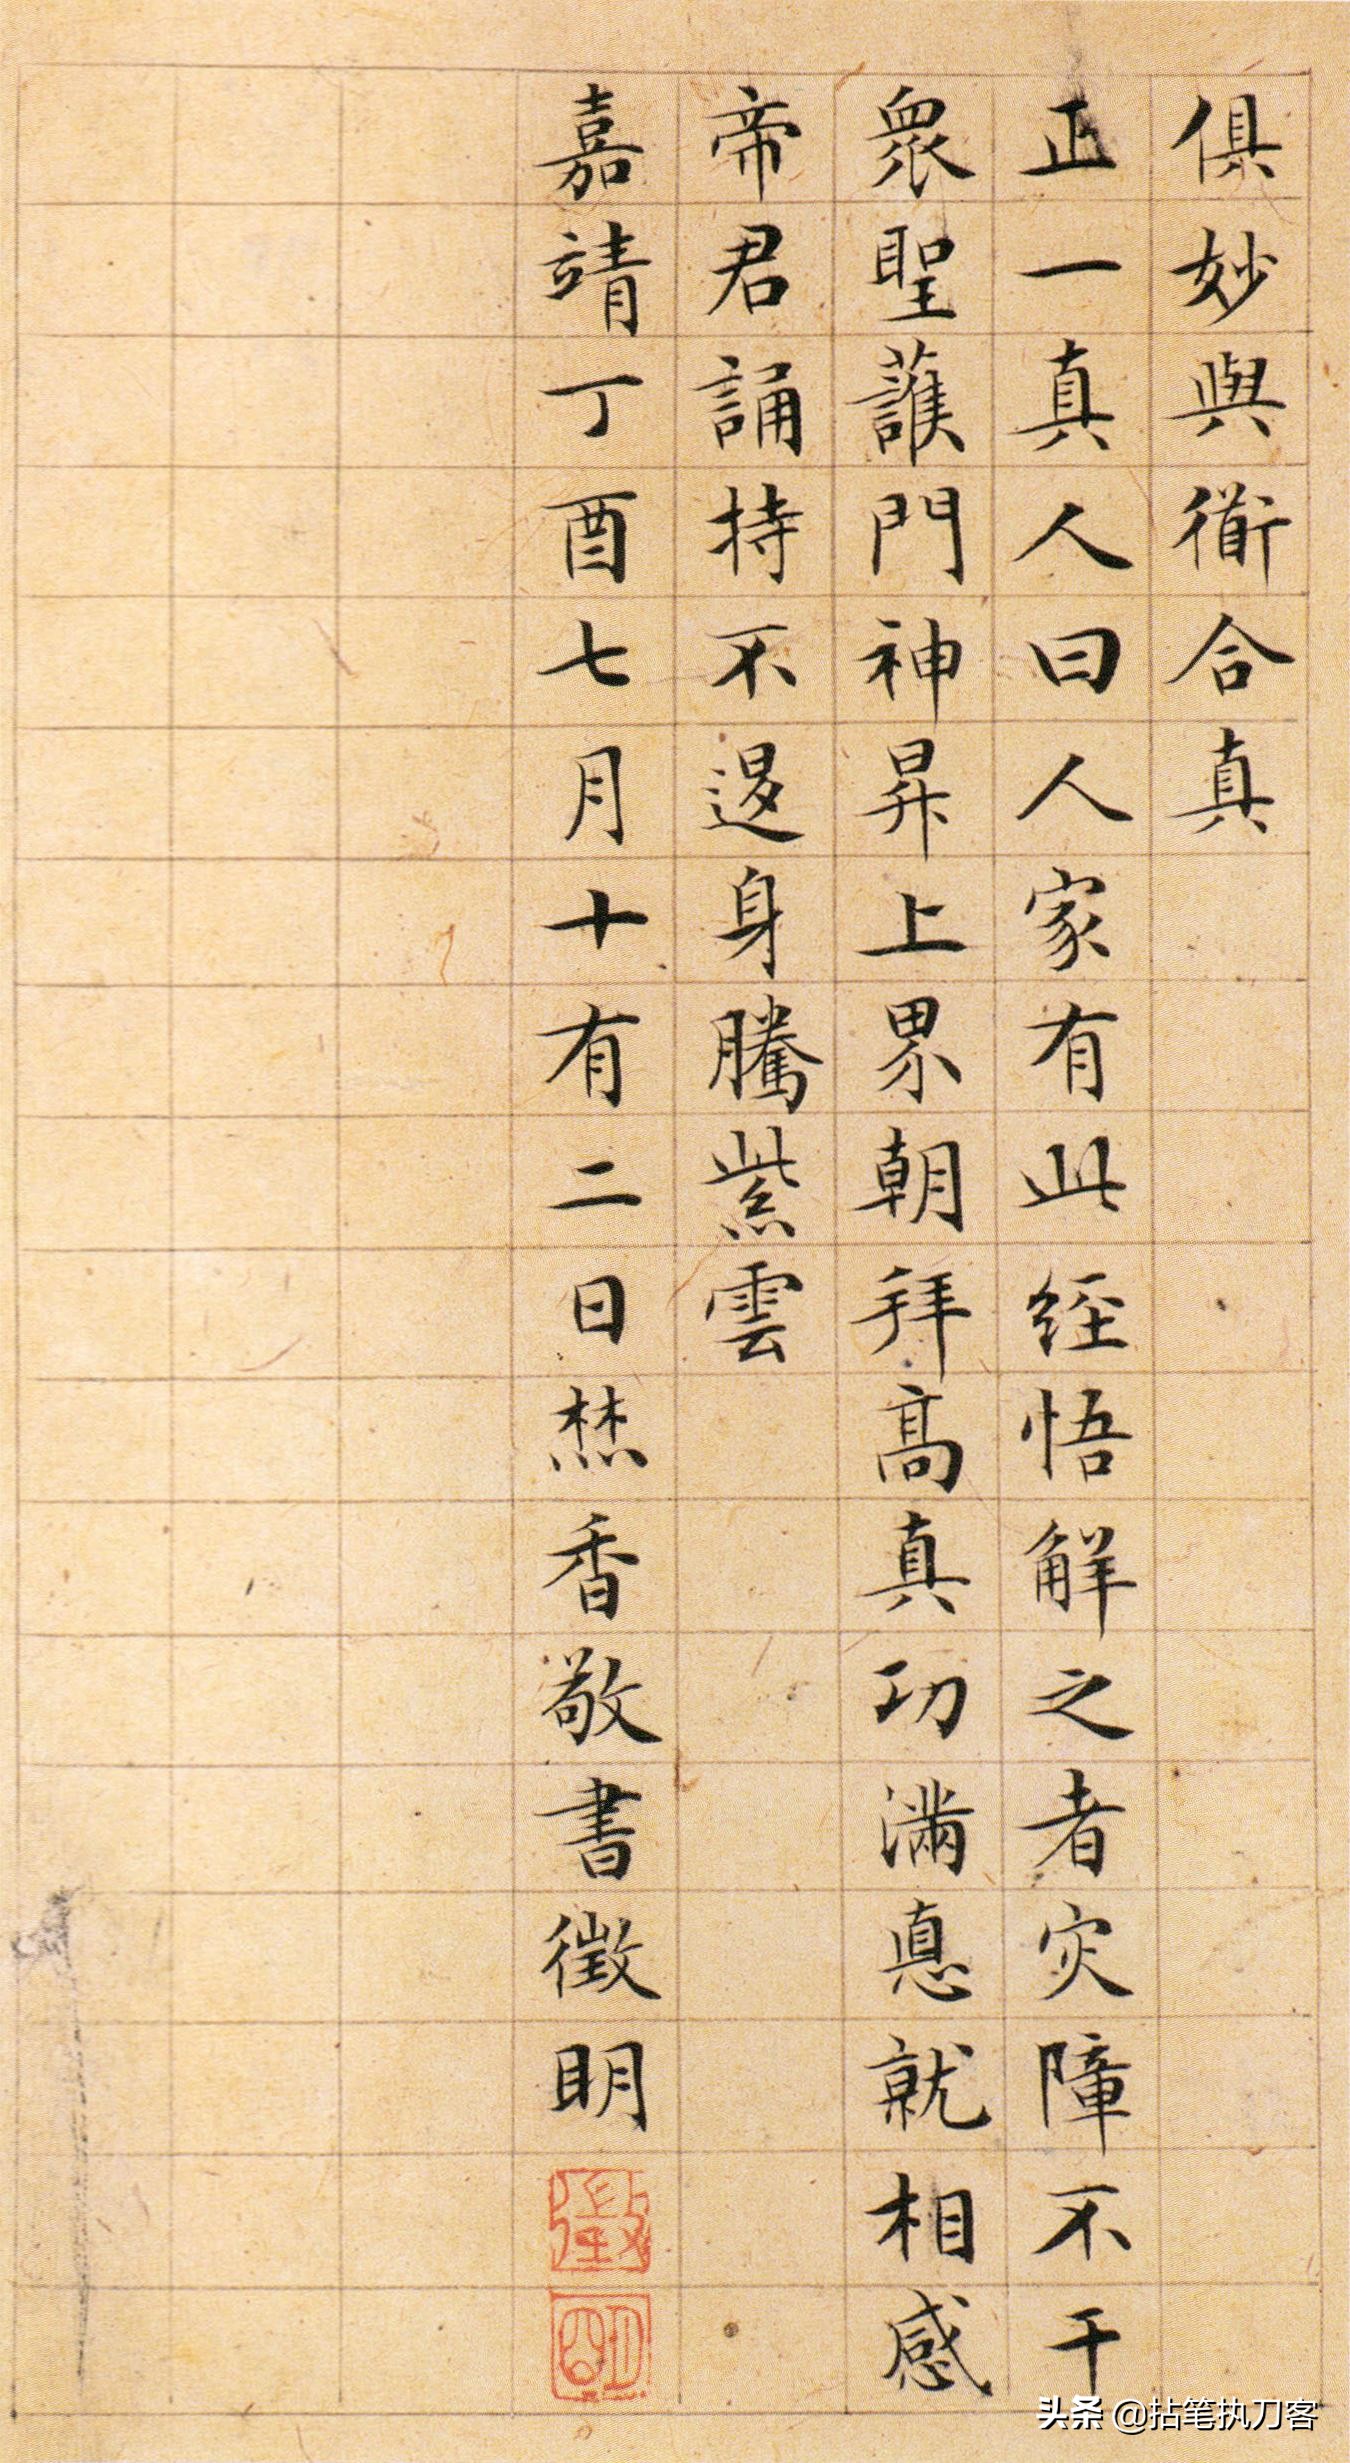 俱妙與衜合真
正一真人曰人家有此經悟解之者災障不干
衆聖護門神昇上界朝拜髙真功滿悳就相感
帝君誦持不退身騰紫雲
嘉靖丁酉七月十有二日焚香敬書徵明
徵
明
头条 @拈笔执刀客